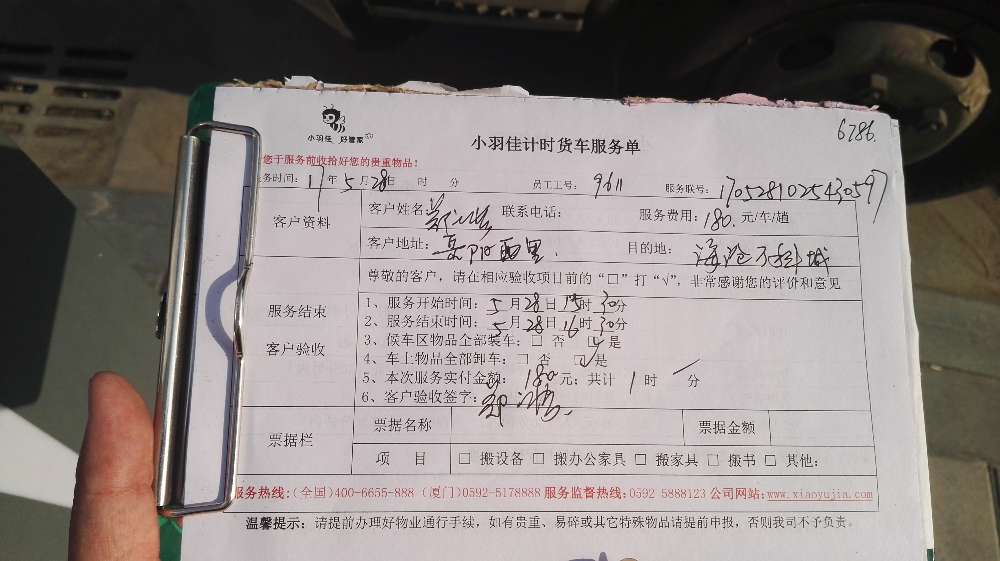 小羽佳 好管家
小羽佳计时货车服务单
6286.
您于服务前收拾好您的贵重物品!
务时间: 17年 5月 28日 时 分 员工工号: 9611 服务联号: 1705281025430597
客户资料
客户姓名: 郑 联系电话: 服务费用: 180. 元/车/趟
客户地址: 岳阳西里 目的地: 海沧万科城
尊敬的客户, 请在相应验收项目前的“□”打“√”, 非常感谢您的评价和意见
服务结束
客户验收
1、服务开始时间: 5月28日15时30分
2、服务结束时间: 5月28日16时30分
3、候车区物品全部装车: □ 否 ☑ 是
4、车上物品全部卸车: □ 否 ☑ 是
5、本次服务实付金额: 180元; 共计 1 时 分
6、客户验收签字: 郑
票据栏
票据名称 票据金额
项 目 □ 搬设备 □ 搬办公家具 □ 搬家具 □ 搬书 □ 其他:
服务热线:(全国)400-6655-888 (厦门)0592-5178888 服务监督热线:0592 5888123 公司网站:www.xiaoyujia.com
温馨提示: 请提前办理好物业通行手续, 如有贵重、易碎或其它特殊物品请提前申报, 否则我司不予负责。